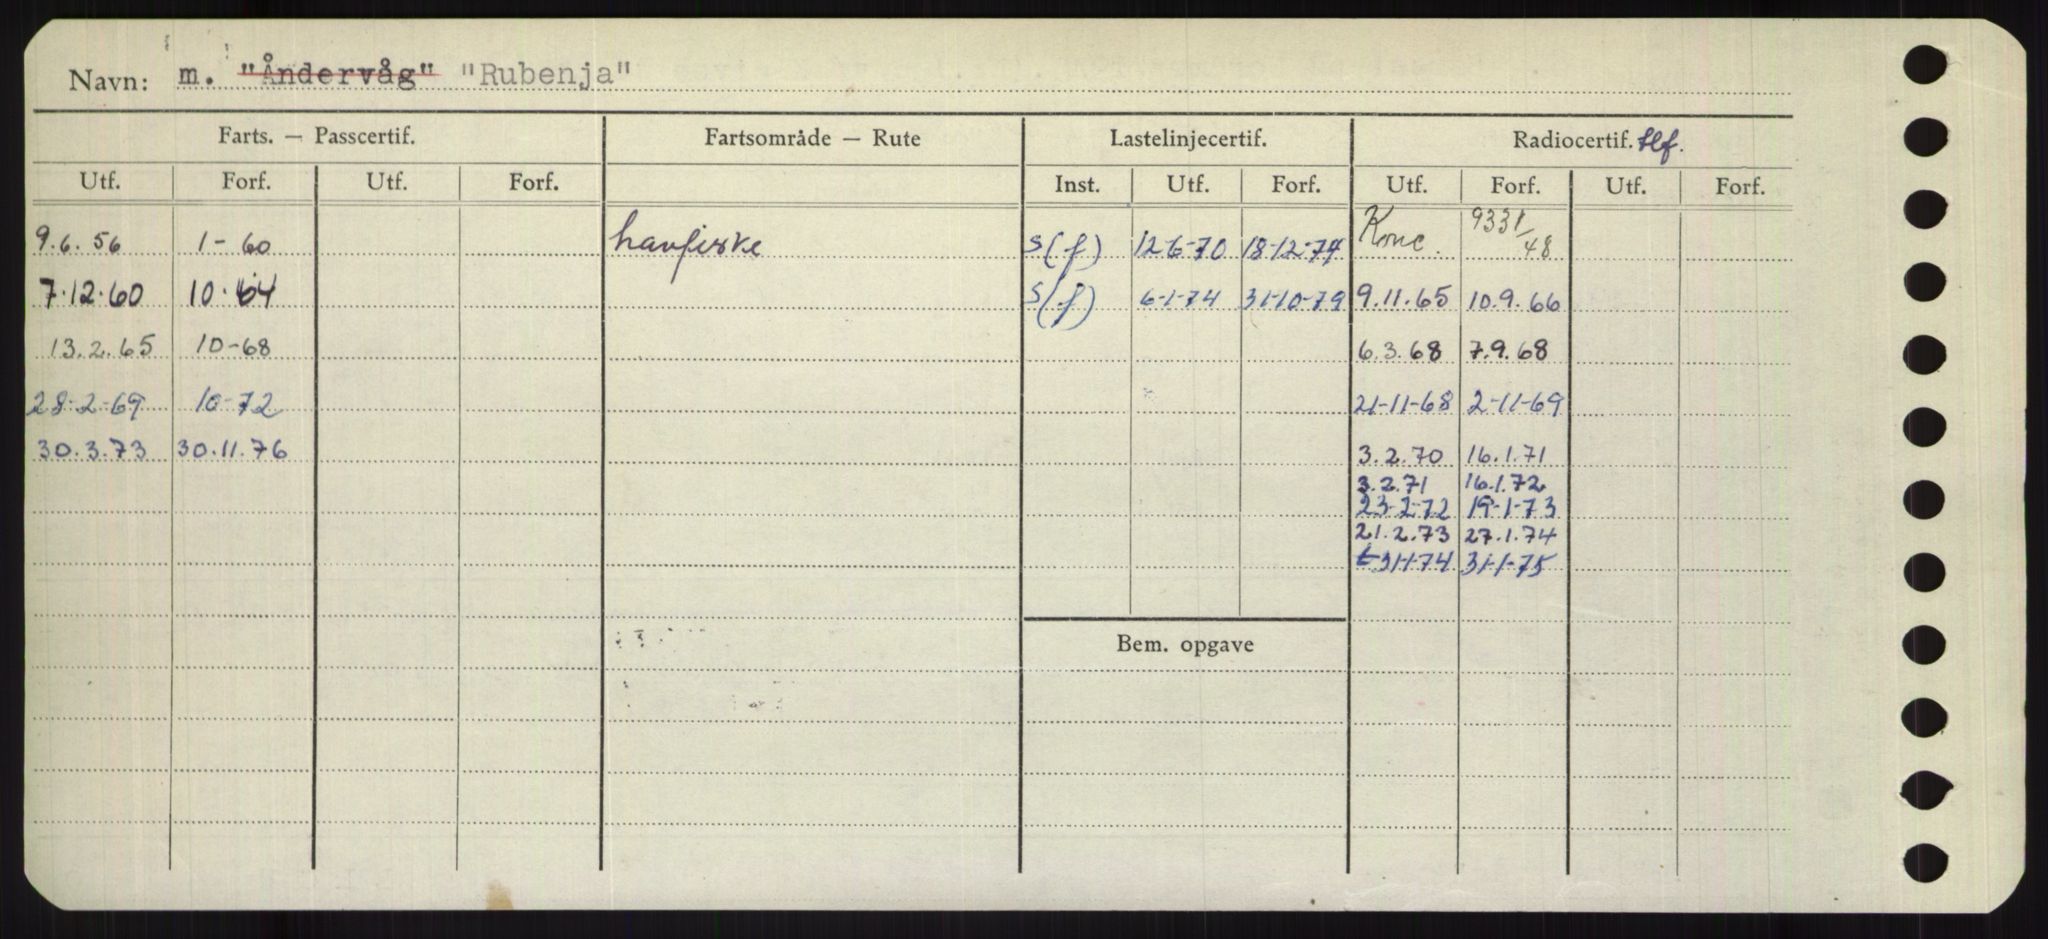 Navn: m. "Åndervåg" "Rubenja"
Farts. — Passcertif. Fartsområde — Rute Lastelinjecertif. Radiocertif. tlf.
Utf. Forf. Utf. Forf. Inst. Utf. Forf. Utf. Forf. Utf. Forf.
9.6.56 1-60 havfiske S(f) 12-6-70 18-12-74 Konc. 9331/48
7.12.60 10.64 S(f) 6-1-74 31-10-79 9.11.65 10.9.66
13.2.65 10-68 6.3.68 7.9.68
28-2-69 10-72 21-11-68 2-11-69
30.3.73 30.11.76 3.2.70 16.1.71
3.2.71 16.1.72
23-2-72 19-1-73
21.2.73 27.1.74
t 31-1-74 31-1-75
Bem. opgave